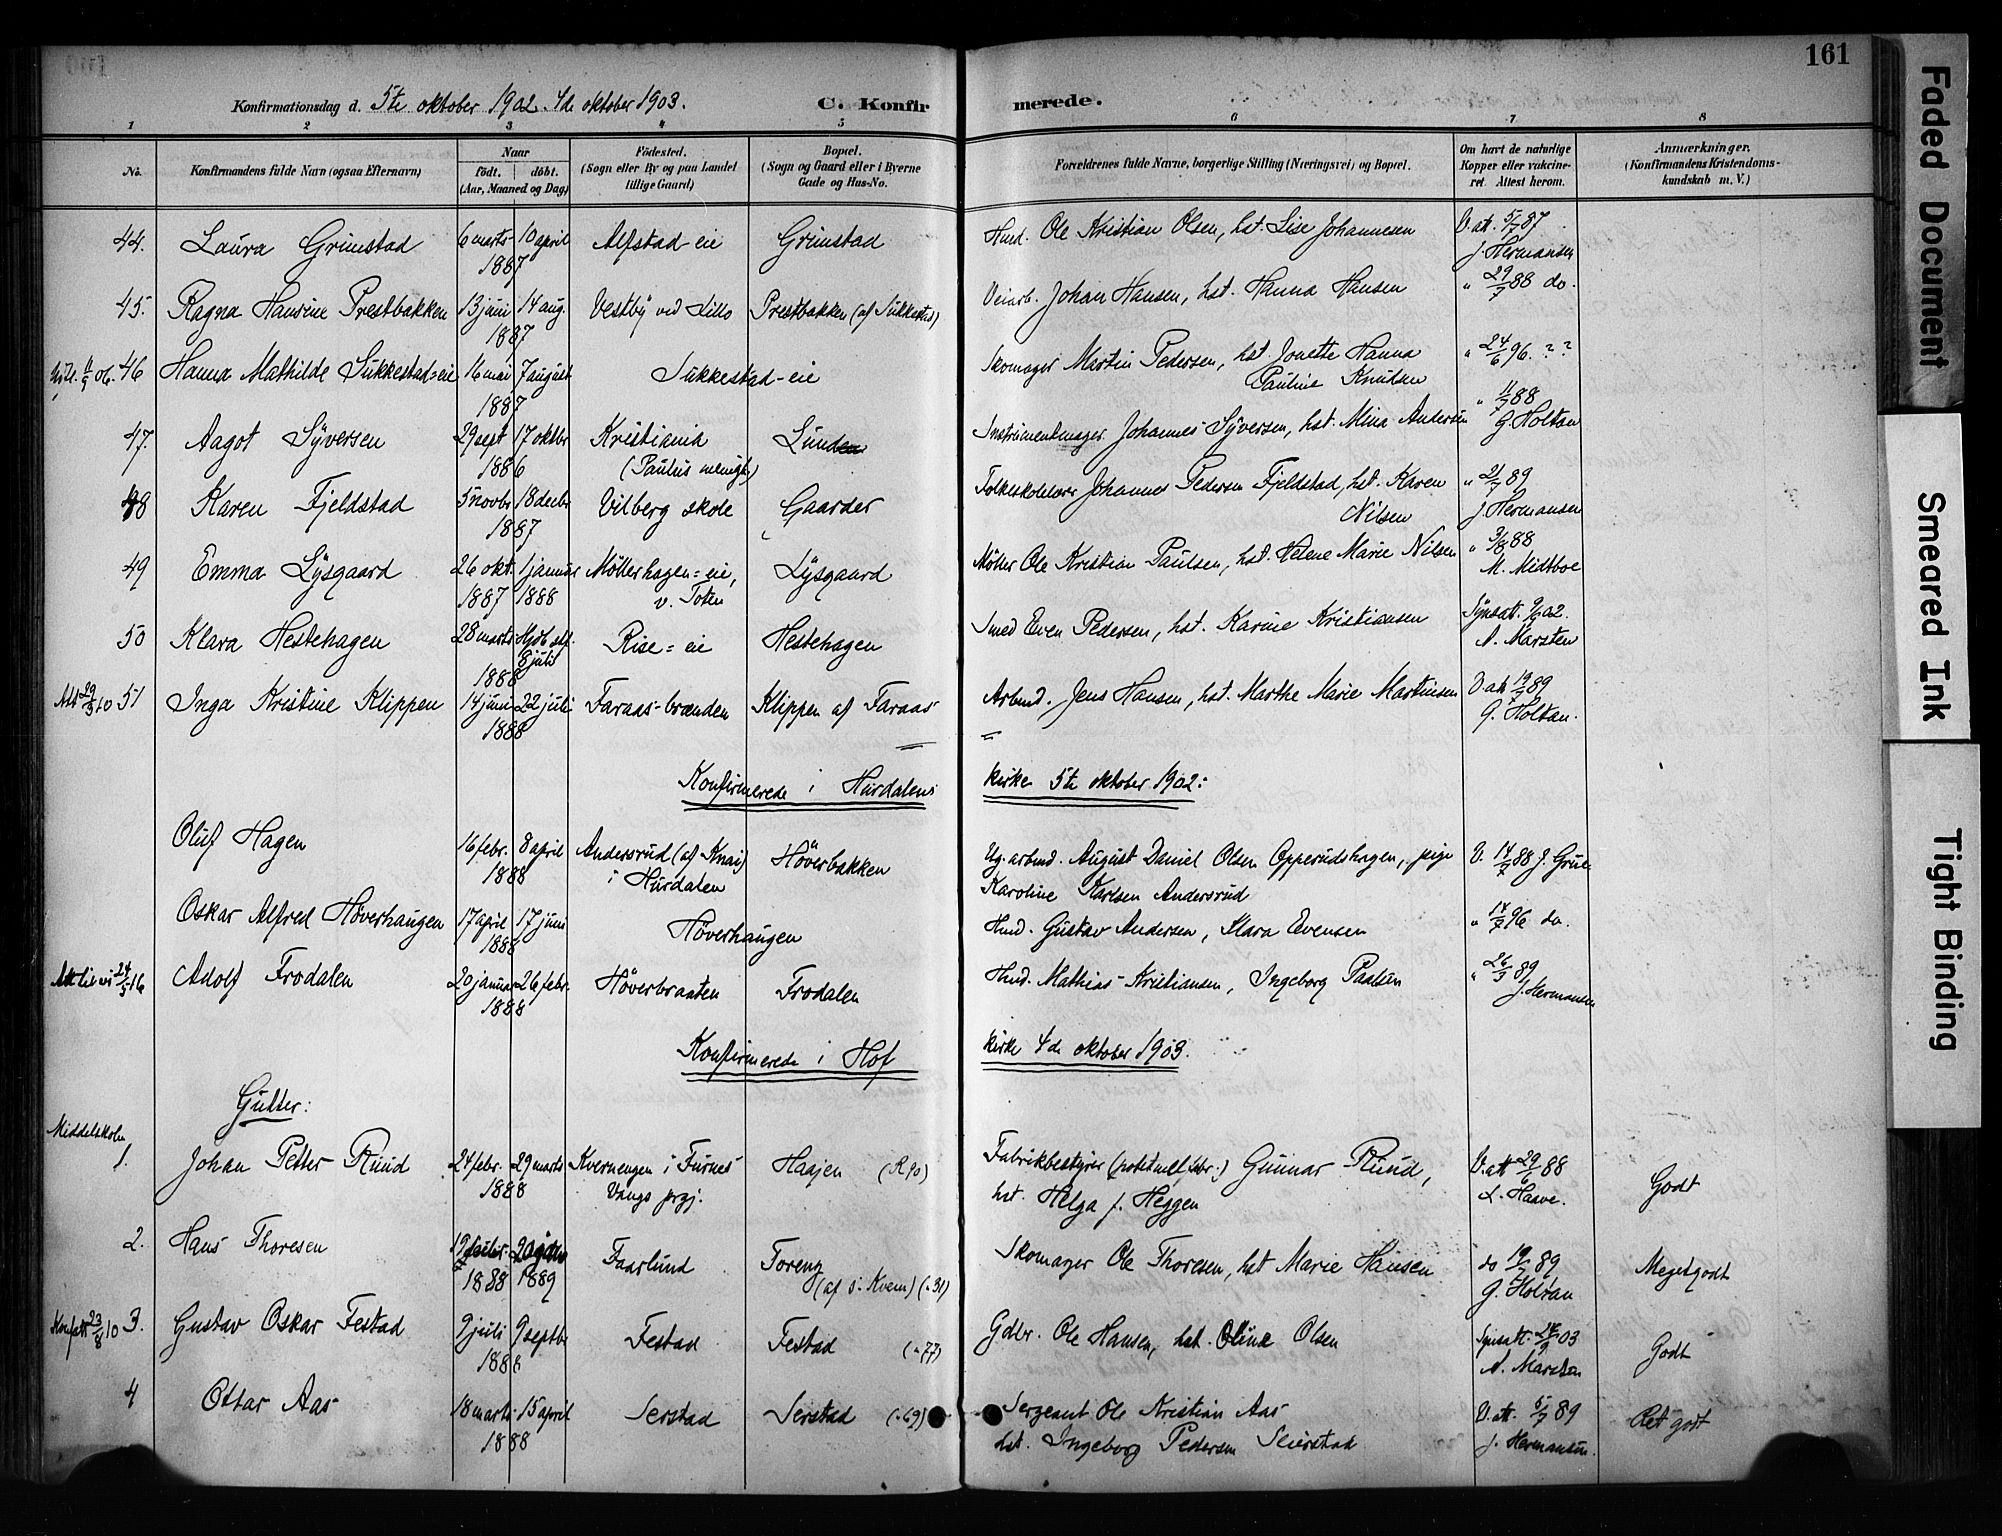 161
Konfirmationsdag d. 5te oktober 1902. 4de oktober 1903. C. Konfirmerede.
1 2 3 4 5 6 7 8
No. Konfirmandens fulde Navn (ogsaa Efternavn) Naar født. døbt. (Aar, Maaned og Dag) Fødested. (Sogn eller By og paa Landet tillige Gaard) Bopæl. (Sogn og Gaard eller i Byerne Gade og Hus-No. Forældrenes fulde Navne, borgerlige Stilling (Næringsvei) og Bopæl. Om havt de naturlige Kopper eller vakcineret. Attest herom. Anmærkninger. (Konfirmandens Kristendomskundskab m. V.)
44. Laura Grimstad 6 marts 10 april 1887 Alfstad-eie Grimstad Husd. Ole Kristian Olsen, hst. Lise Johannesen V. at. 5/7 87 J. Hermansen
45. Ragna Hansine Prestbakken 13 juni 14 aug. 1887 Vestby ved Lillo Prestbakken (af Sukkestad) Veiarb. Johan Hansen, hst. Hanna Hansen " 29/7 88 do.
46 Hanna Mathilde Sukkestad=eie 16 mai 7 august 1887 Sukkestad-eie Skomager Martin Pedersen, hst. Jonette Hanna Pauline Knudsen " 24/6 96. ? ?
47. Aagot Syversen 29 sept 17 oktbr 1886 Kristiania (Paulus menigh.) Lunden Instrumentmager Johannes Syversen, hst. Mina Andersen " 11/7 88 G. Holtan
48 Karen Fjeldstad 5 novbr 18 decbr 1887 Vilberg skole Gaarder Folkeskolelærer Johannes Pedersen Fjeldstad, hst. Karen Nilsen " 2/7 89 J. Hermansen
49 Emma Lysgaard 26 okt. 1 januar 1887 1888 Möllerhagen=eie, v. Toten Lysgaard Möller Ole Kristian Paulsen, hst. Helene Marie Nilsen " 3/8 88 M. Midtboe
50 Klara Hestehagen 28 marts Hjdb. stf. 8 juli 1888 Rise=eie Hestehagen Smed Even Pedersen, hst. Karine Kristiansen Synsatt. 9/6 02. A. Marsten
Att 29/3 10 51 Inga Kristine Klippen 14 juni 22 juli 1888 Faraas-brænden Klippen af Faraas Arbmd. Jens Hansen, hst. Marthe Marie Martinsen V. att 19/7 89 G. Holtan.
Konfirmerede i Hurdalens kirke 5te oktober 1902:
Oluf Hagen 16 febr. 8 april 1888 Andersrud (af Knai) i Hurdalen Höverbakken Ug. arbmd. August Daniel Olsen Opperudshagen, pige Karoline Karlsen Andersrud V. 14/7 88 J. Grue
Oskar Alfred Höverhaugen 17 april 17 juni 1888 Höverhaugen Husd. Gustav Andersen, Klara Evensen " 14/7 96 do.
24/3 16 Adolf Frodalen 20 januar 26 febr. 1888 Höverbraaten Frodalen Husd. Mathias Kristiansen, Ingeborg Paulsen " 26/7 89 J. Hermansen
Konfirmerede i Hof kirke 4de oktober 1903.
Gutter:
Middelskolen
1. Johan Petter Ruud 24 febr. 29 marts 1888 Kvernengen i Furnes Vangs prgj. Haajen (R 90) Fabrikbestyrer Gunnar Ruud, hst. Helga f. Heggen V. att 29/6 88 L. Haave. Godt
2. Hans Thoresen 1888 1889 Faarlund Foreng (af ö. Kvem) (" 31) Skomager Ole Thoresen, hst Marie Hansen do 19/7 89 G. Holtan Megetgodt
Konfatt 23/8 10 3. Gustav Oskar Festad 9 juli 9 septbr 1888 Festad Festad (" 77) Gdbr. Ole Hansen, hst. Oline Olsen Synsatt. 24/9 03 A. Marsten Godt
4 Ottar Aas 18 marts 15 april 1888 Serstad Serstad (" 69) Sergeant Ole Kristian Aas hst. Ingeborg Pedersen Seierstad V. att. 5/7 89 J. Hermansen. Ret godt
Faded Document
Smeared Ink
Tight Binding